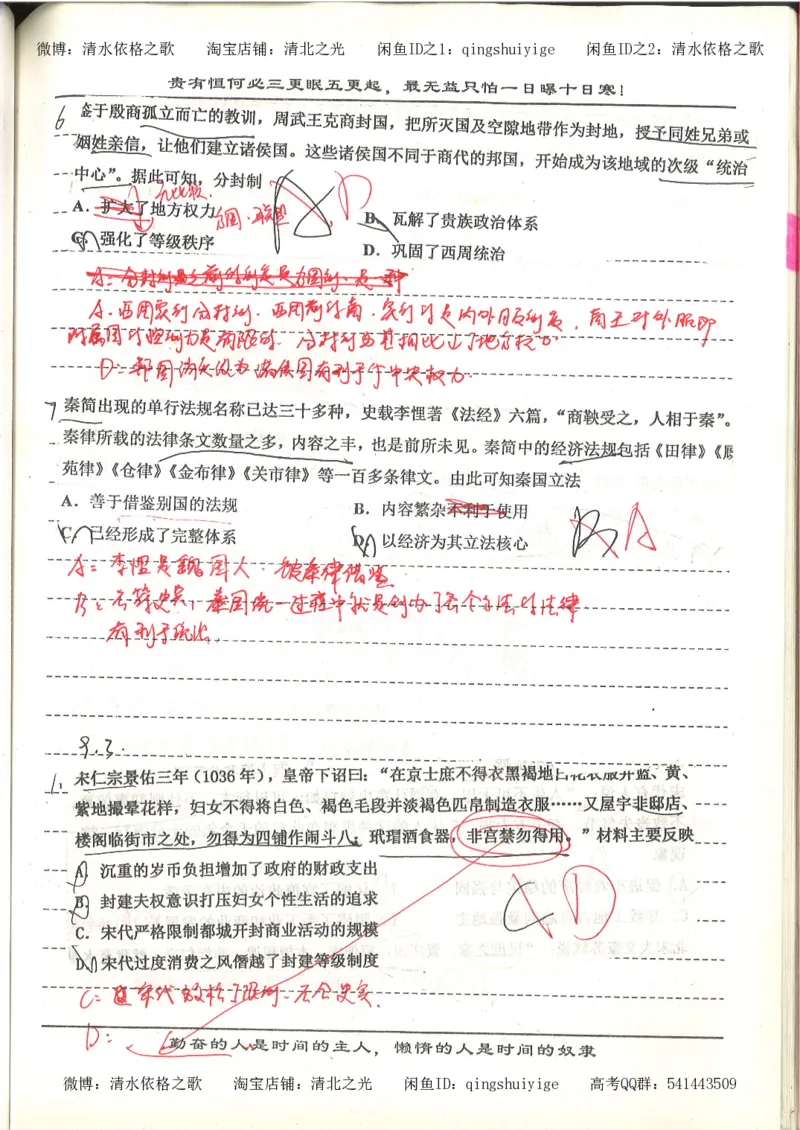 微博：清水依格之歌 淘宝店铺：清北之光 闲鱼ID之1：qingshuiyige 闲鱼ID之2：清水依格之歌
贵有恒何必三更眠五更起，最无益只怕一日曝十日寒！
6 鉴于殷商孤立而亡的教训，周武王克商封国，把所灭国及空隙地带作为封地，授予同姓兄弟或
姻姓亲信，让他们建立诸侯国。这些诸侯国不同于商代的邦国，开始成为该地域的次级“统治
中心”。据此可知，分封制
A．扩大了地方权力
B．瓦解了贵族政治体系
C．强化了等级秩序
D．巩固了西周统治
D
A.西周实行分封制.
7 秦简出现的单行法规名称已达三十多种，史载李悝著《法经》六篇，“商鞅受之，人相于秦”。
秦律所载的法律条文数量之多，内容之丰，也是前所未见。秦简中的经济法规包括《田律》《厩
苑律》《仓律》《金布律》《关市律》等一百多条律文。由此可知秦国立法
A．善于借鉴别国的法规
B．内容繁杂不利于使用
C．已经形成了完整体系
D．以经济为其立法核心
B A
A：李悝是魏国人 被秦律借鉴
B：不符史实，秦国统一过程中
有利于统治.
9.3.
1. 宋仁宗景佑三年（1036 年），皇帝下诏曰：“在京士庶不得衣黑褐地白花衣服并蓝、黄、
紫地撮晕花样，妇女不得将白色、褐色毛段并淡褐色匹帛制造衣服……又屋宇非邸店、
楼阁临街市之处，勿得为四铺作闹斗八。玳瑁酒食器，非宫禁勿得用。”材料主要反映
A．沉重的岁币负担增加了政府的财政支出
B．封建夫权意识打压妇女个性生活的追求
C．宋代严格限制都城开封商业活动的规模
D．宋代过度消费之风僭越了封建等级制度
D
C：宋代放松了限制.不合史实.
D：
勤奋的人是时间的主人，懒惰的人是时间的奴隶
微博：清水依格之歌 淘宝店铺：清北之光 闲鱼ID：qingshuiyige 高考QQ群：541443509